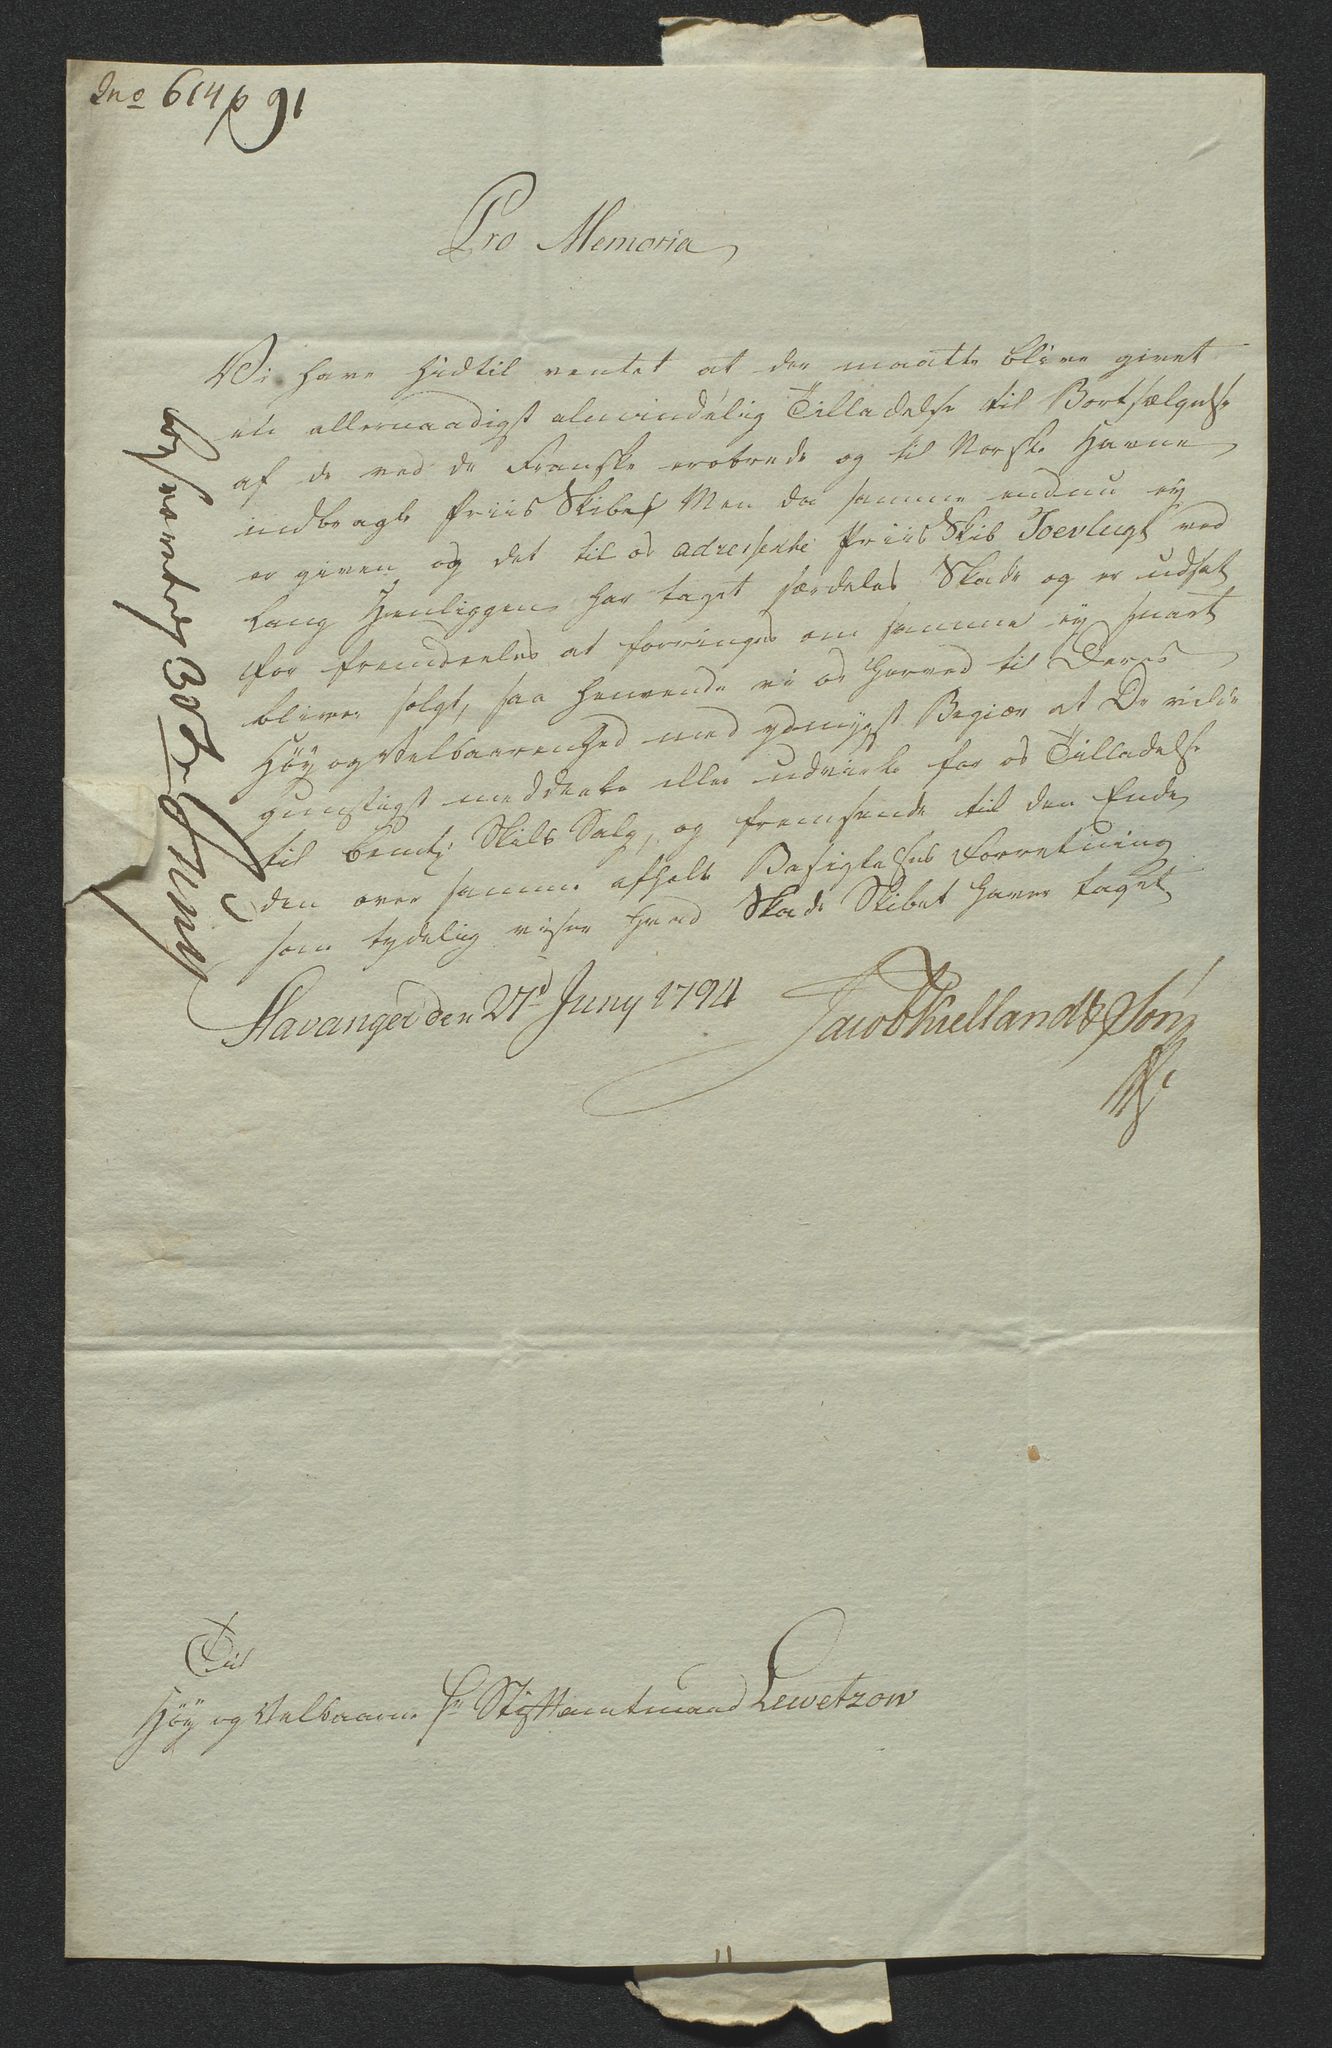 Qno 614 p 91
Pro Memoria
Vi have hidtil ventet at der maatte blive givet
en allernaadigst almindelig Tilladelse til Bortsælgelse
af de ved de Franske erobrede og til Norske Havne
indbragte Priis Skibe, Men da samme endnu ey
er given og det til os adresserte Priis Skib Toevlugt ved
lang Henliggen har taget særdeles Skade og er udsat
for fremdeeles at forringes om samme ey snart
bliver solgt, saa henvende vi os herved til Deres
Høy og Velbaarenhed med ydmygst Begiær at De vilde
gunstigst meddeele eller udvirke for os Tilladelse
til bemte Skibs Salg, og fremsende til den Ende
den over samme afholte Besigtelses Forretning
som tydelig viser hvad Skade Skibet haver taget
Stavanger den 27d Juny 1794
Jacob Kielland & Søn
Til
Høy og Velbaarne Hr Stiftamtmand Lewetzow
30 Juny